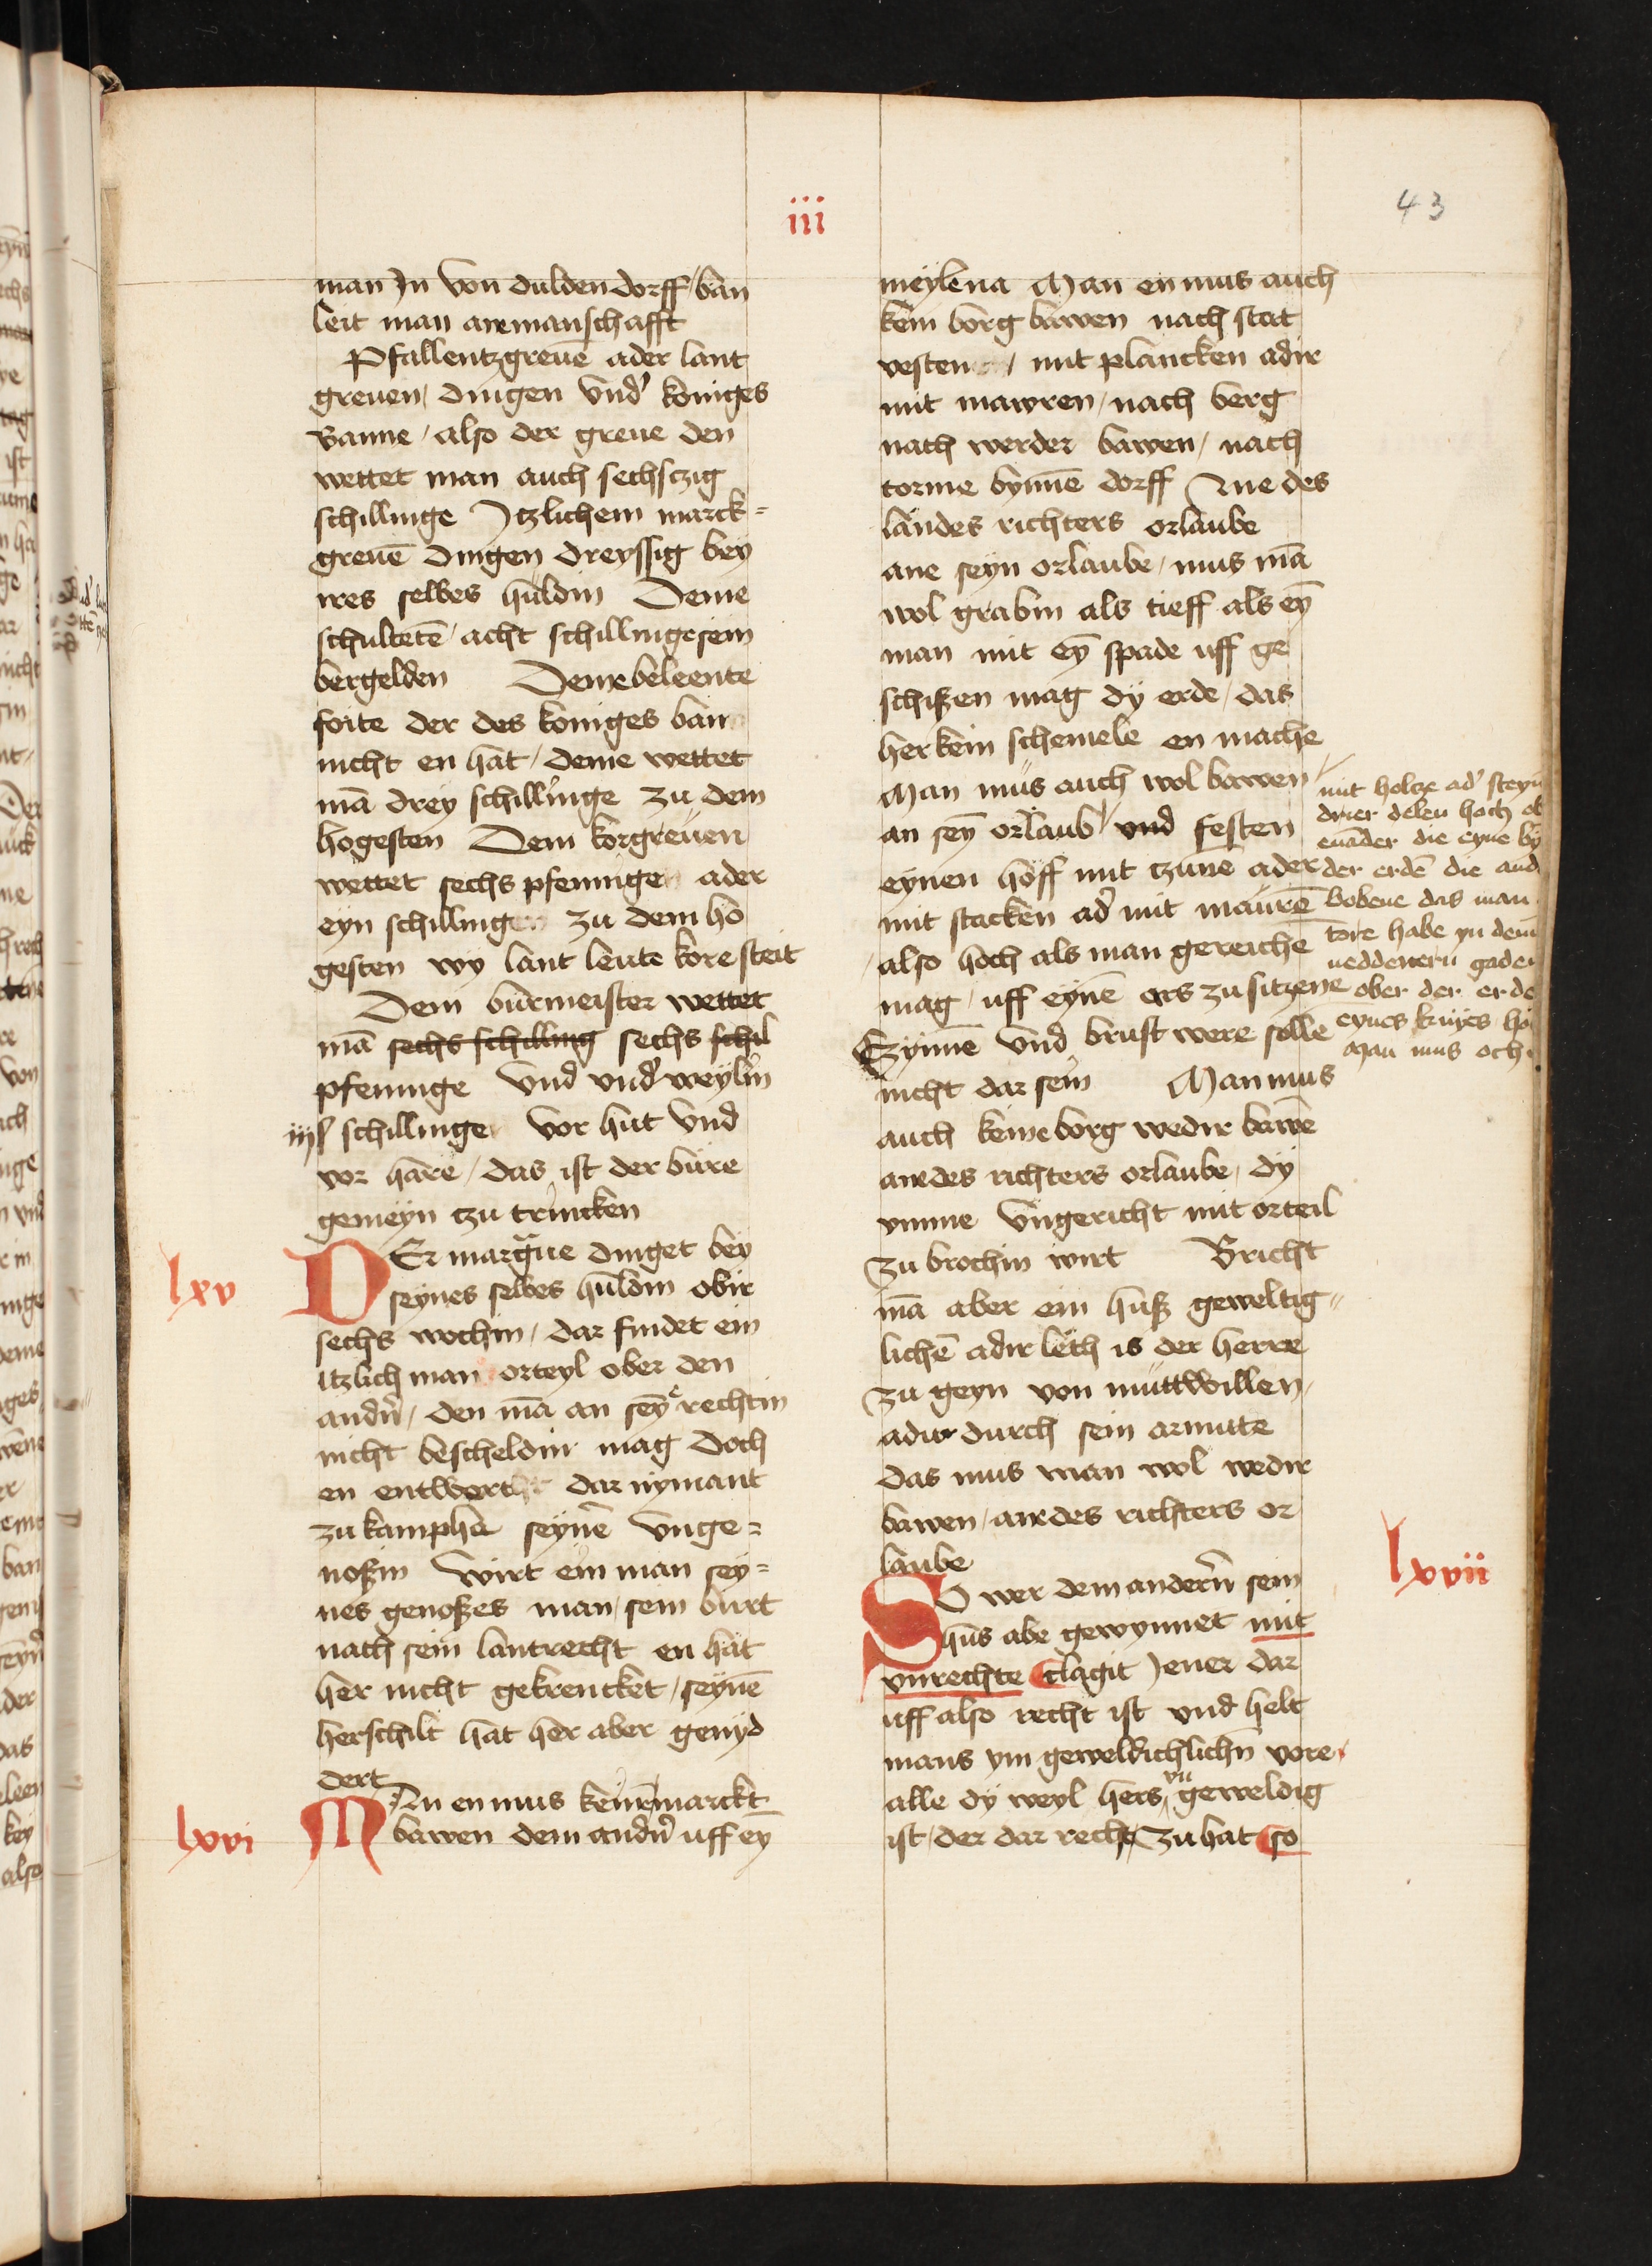 iii
43
man Jn von duldendorff / ban
leit man anemanschafft
Pfallentzgreuē ader lant
greuen / dingen vnd' koniges
Banne / also der greue den
wettet man auch sechsczig
schillinge Jtzlichem marck=
greuē dingen dreyssig bey
ires selbes huldin Deme
schultetē / acht schillinge sein
bergelden Deme beleente
foite der des koniges ban
nicht en hat / deme wettet
mā drey schillinge zu dem
hogesten Dem korgreuen
wettet sechs pfenninge ader
eyn schillinge zu dem ho
gesten wy lant leute kore steit
Dem burmeister wettet
mā sechs schilling sechs schil
pfeninge vnd vnd' weylin
iij schillinge vor hut vnd
vor hare / das ist der bure
gemeyn tzu trincken
lxv
DEr margue dinget bey
seynes selbes huldin obir
sechs wochin / dar findet ein
itzlich man orteyl ober den
andn̄ / den mā an seȳ rechtin
nicht bescheldin mag doch
en entwert dar nymant
zu kamphe seynē vnge=
noßin wirt ein man sey=
nes genoßes man / sein burt
nach sein lantrecht en hat
her nicht gekrencket / seynē
herschilt hat her aber genyd
dert
lxvi
MAn en mus keinē marckt
bawen dem andn̄ uff ey
meylena Man en mus auch
kein borg bawen nach stat
vesten / mit plancken adir
mit mawren / nach berg
nach werder bawen / nach
torme bynnē dorff Ane des
landes richters orlaube
ane seyn orlaube / mus mā
wol grabin als tieff als eȳ
man mit eȳ spade uff ge
schißen mag dy erde / das
her kein schemele en mache
Man mus auch wol bawen /
an seȳ orlaub vnd festen
eynen hoff mit tzune ader
mit stacken ad' mit maurē
also hoch als man gereiche
mag / uff eynē ors zu sitzene
Czynnē vnd brust were solle
nicht dar sein Man mus
auch keine borg wedir bawē
ane des richters orlaube / dy
vmme vngericht mit orteil
zu brochin wirt Bricht
mā aber ein huß geweltig=
lichē adir leth is der herre
zu geyn von muttwillen /
adir durch sein armute
das mus man wol wedir
bawen / ane des richters or
laube
lxvii
SO wer dem andern̄ sein
hus abe gewynnet mit
vnrechte clagit Jener dar
uff also recht ist vnd helt
mans ym geweldichlichn̄ vore
alle dy weyl hers vn geweldig
ist / der dar recht zu hat so
mit holcze ad' steyn
drier delen hoch ob
enāder die eyne by
der erdē die and
bobene das man
tore habe yn dem
neddenern gade
ober der erde
eynes knyes ho
Man mus och